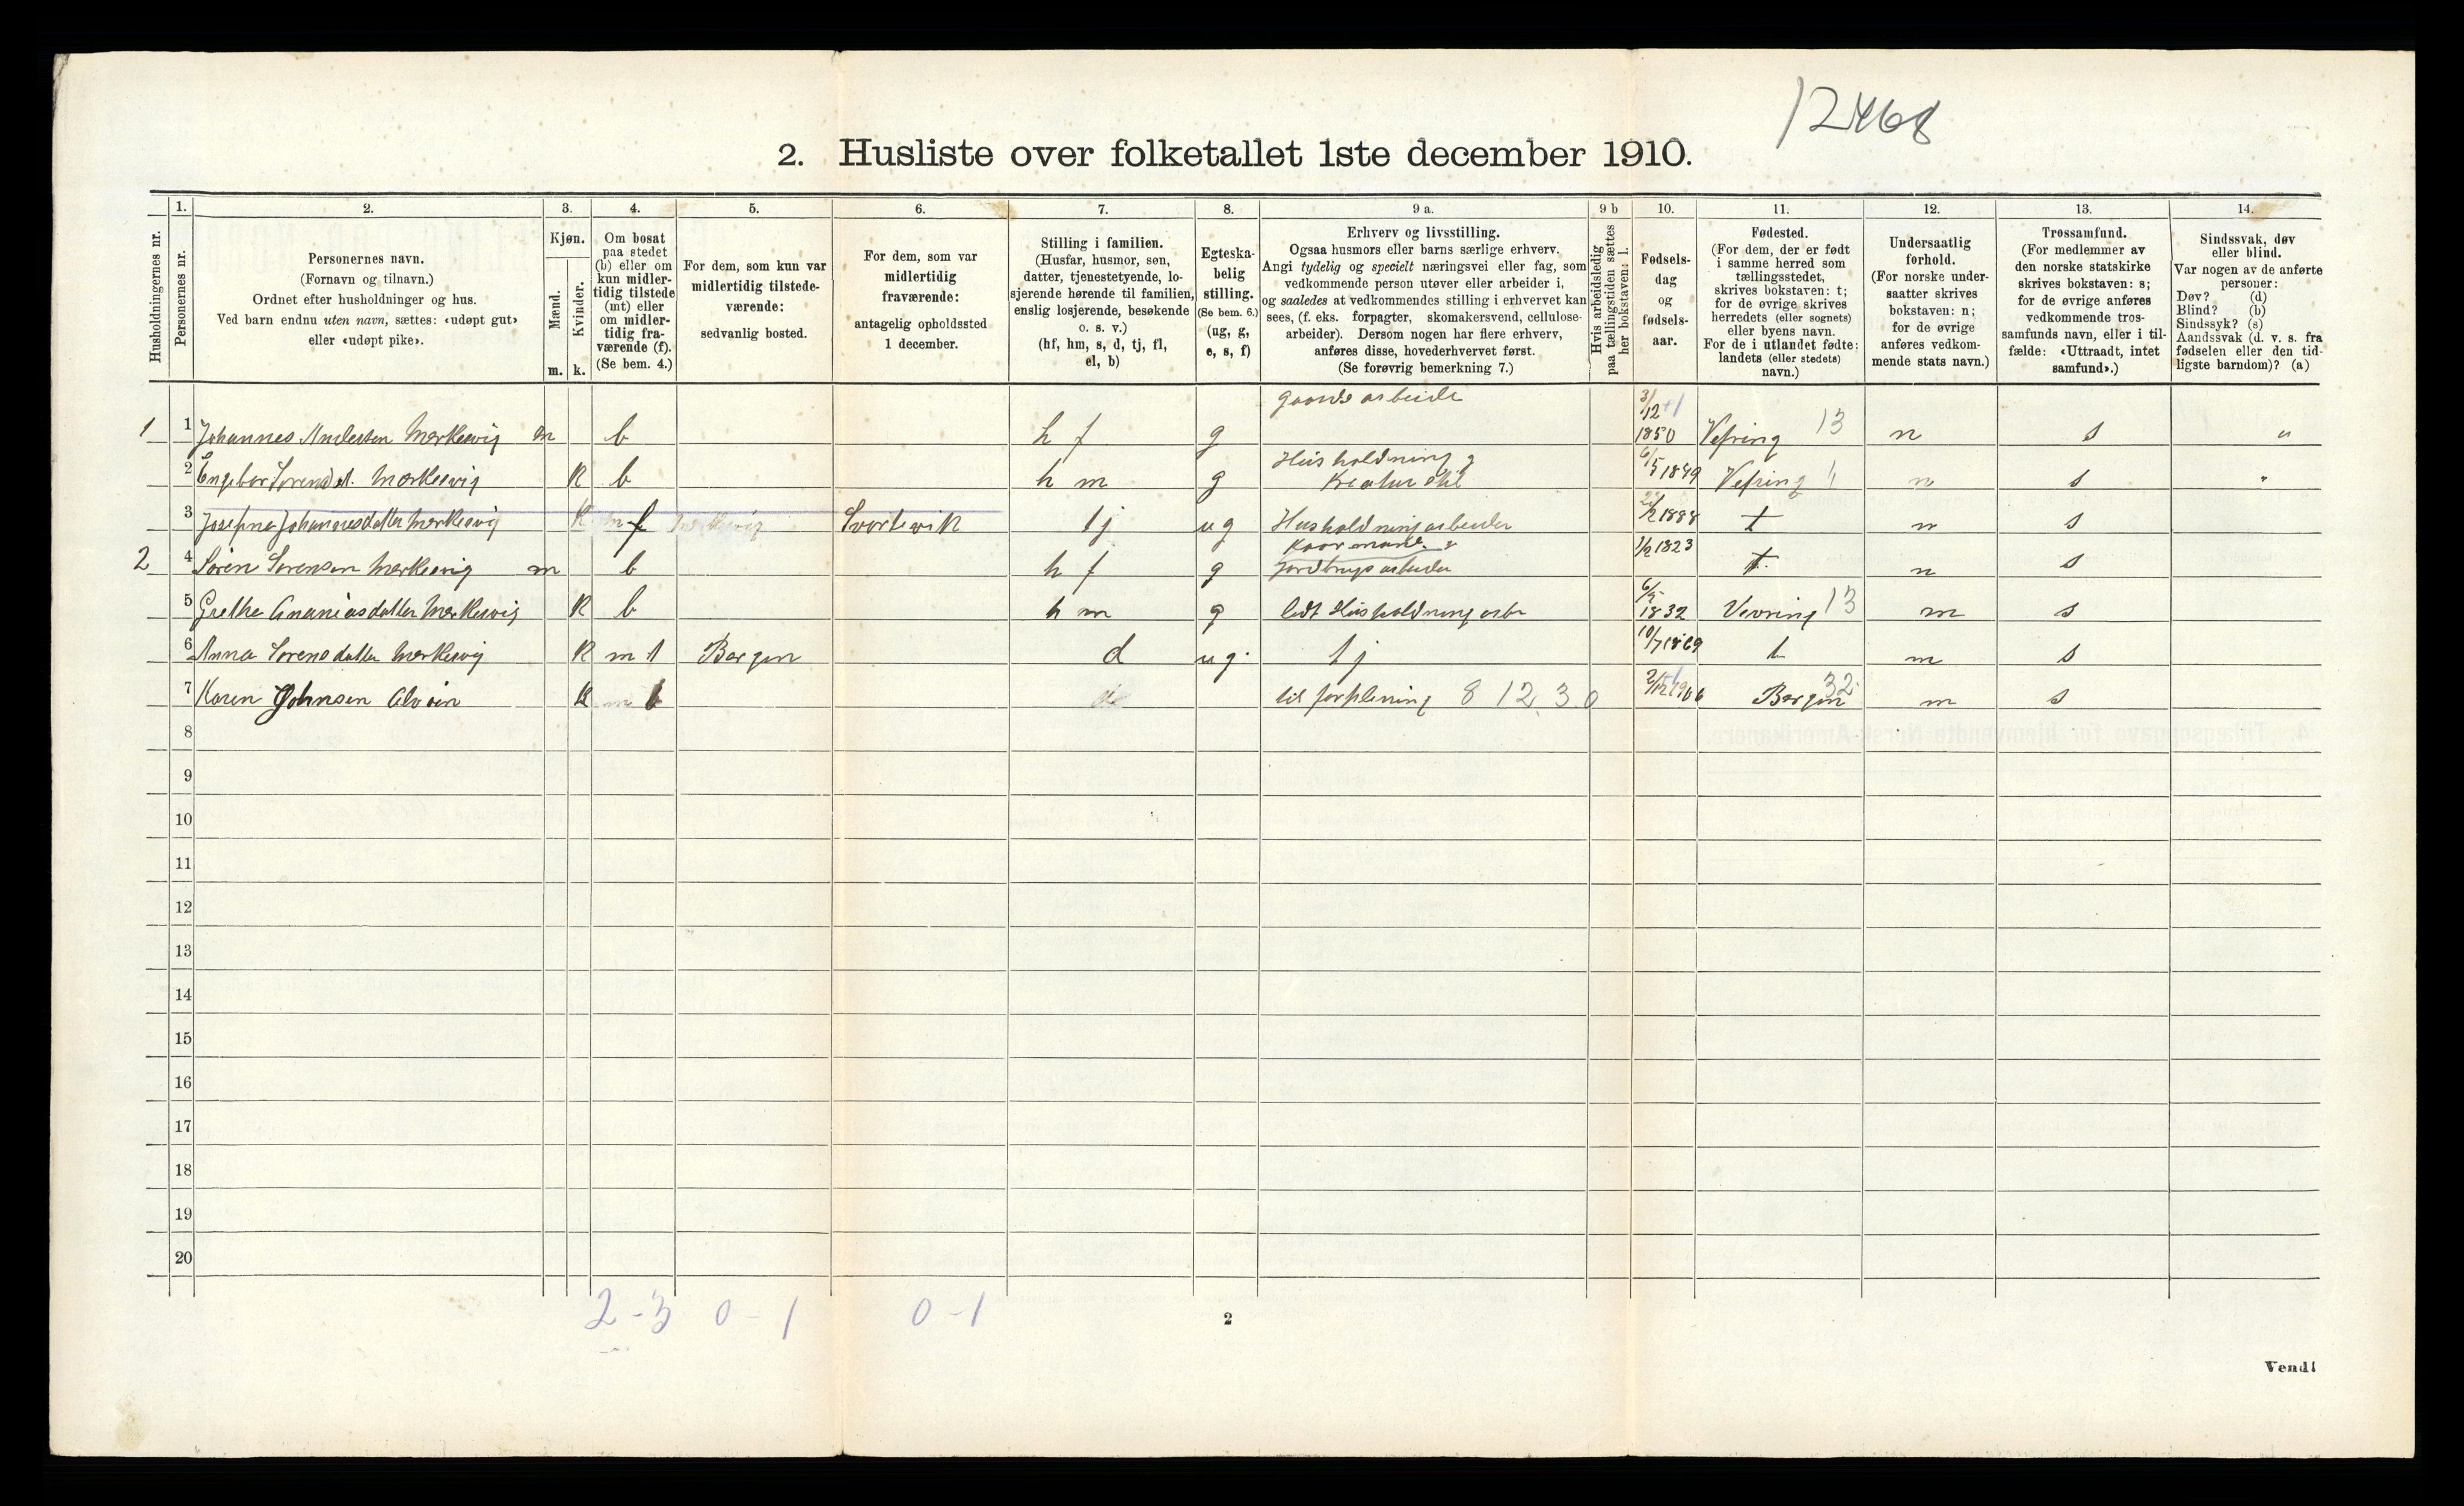 12468
2. Husliste over folketallet 1ste december 1910.
Husholdningernes nr.
1.
Personernes nr.
2.
Personernes navn.
(Fornavn og tilnavn.)
Ordnet efter husholdninger og hus.
Ved barn endnu uten navn, sættes: «udøpt gut»
eller «udøpt pike».
3.
Kjøn.
Mænd.
Kvinder.
m. k.
4.
Om bosat
paa stedet
(b) eller om
kun midler-
tidig tilstede
(mt) eller
om midler-
tidig fra-
værende (f).
(Se bem. 4.)
5.
For dem, som kun var
midlertidig tilstede-
værende:
sedvanlig bosted.
6.
For dem, som var
midlertidig
fraværende:
antagelig opholdssted
1 december.
7.
Stilling i familien.
(Husfar, husmor, søn,
datter, tjenestetyende, lo-
sjerende hørende til familien,
enslig losjerende, besøkende
o. s. v.)
(hf, hm, s, d, tj, fl,
el, b)
8.
Egteska-
belig
stilling.
(Se bem. 6.)
(ug, g,
e, s, f)
9 a.
Erhverv og livsstilling.
Ogsaa husmors eller barns særlige erhverv.
Angi tydelig og specielt næringsvei eller fag, som
vedkommende person utøver eller arbeider i,
og saaledes at vedkommendes stilling i erhvervet kan
sees, (f. eks. forpagter, skomakersvend, cellulose-
arbeider). Dersom nogen har flere erhverv,
anføres disse, hovederhvervet først.
(Se forøvrig bemerkning 7.)
9 b
Hvis arbeidsledig
paa tællingstiden sættes
her bokstaven: l.
10.
Fødsels-
dag
og
fødsels-
aar.
11.
Fødested.
(For dem, der er født
i samme herred som
tællingsstedet,
skrives bokstaven: t;
for de øvrige skrives
herredets (eller sognets)
eller byens navn.
For de i utlandet fødte:
landets (eller stedets)
navn.)
12.
Undersaatlig
forhold.
(For norske under-
saatter skrives
bokstaven: n;
for de øvrige
anføres vedkom-
mende stats navn.)
13.
Trossamfund.
(For medlemmer av
den norske statskirke
skrives bokstaven: s;
for de øvrige anføres
vedkommende tros-
samfunds navn, eller i til-
fælde: «Uttraadt, intet
samfund».)
14.
Sindssvak, døv
eller blind.
Var nogen av de anførte
personer:
Døv? (d)
Blind? (b)
Sindssyk? (s)
Aandssvak (d. v. s. fra
fødselen eller den tid-
ligste barndom)? (a)
1 1 Johannes Andersen Merkesvig m b h f g gaards arbeide 3/12 1850 Vefring 13 n s "
2 Engebor Sorensd. Merkesvig K b h m g Husholdning & Kreatur stel 6/5 1849 Vefring n s "
3 Josefine Johannesdatter Merkesvig K f Svortevik tj u g Husholdning arbeider 1888 t n s
2 4 Søren Sørensen Merkesvig m b h f g Kaarmand & Jordbrugsarbeider 1/2 1823 t. n s
5 Grethe Ananiasdatter Merkesvig K b h m g lidt Husholdning arbe 6/5 1832 Vevring 13 n s
6 Anna Sorensdatter Merkesvig K m t Bergen d u g. tj 10/7 1869 t n s
7 Karen Johnsen Alvøen K b til forplening 8 12 3 0 2/12 1906 Bergen 32 n s
8
9
10
11
12
13
14
15
16
17
18
19
20
2-3 0-1 0-1
2
Vend!